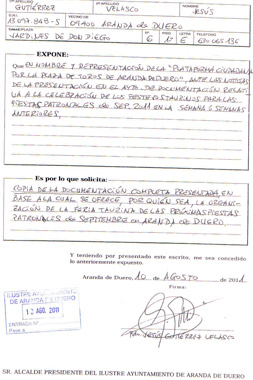 GUTIÉRREZ VELASCO JESÚS
09400 ARANDA DE DUERO
JARDINES DE DON DIEGO 6
EXPONE:
QUE EN NOMBRE Y REPRESENTACIÓN DE LA "PLATAFORMA CIUDADANA
POR LA PLAZA DE TOROS DE ARANDA DE DUERO", ANTE LAS NOTICIAS
DE LA PRESENTACIÓN EN EL AYTO. DE DOCUMENTACIÓN RELATI
VA A LA CELEBRACIÓN DE LOS FESTEJOS TAURINOS PARA LAS
FIESTAS PATRONALES DE SEP. 2011 EN LA SEMANA O SEMANAS
ANTERIORES,
Es por lo que solicita:
COPIA DE LA DOCUMENTACIÓN COMPLETA PRESENTADA, EN
BASE A LA CUAL SE OFRECE, POR QUIEN SEA, LA ORGANI-
ZACIÓN DE LA FERIA TAURINA DE LAS PRÓXIMAS FIESTAS
PATRONALES DE SEPTIEMBRE EN ARANDA DE DUERO.
Y teniendo por presentado este escrito, me sea concedido
lo anteriormente expuesto.
Aranda de Duero, 10 de AGOSTO de 2011
Firma:
ILUSTRE AYUNTAMIENTO
DE ARANDA DE DUERO
12 AGO. 2011
ENTRADA Nº
Pase a
JESÚS GUTIÉRREZ VELASCO
SR. ALCALDE PRESIDENTE DEL ILUSTRE AYUNTAMIENTO DE ARANDA DE DUERO